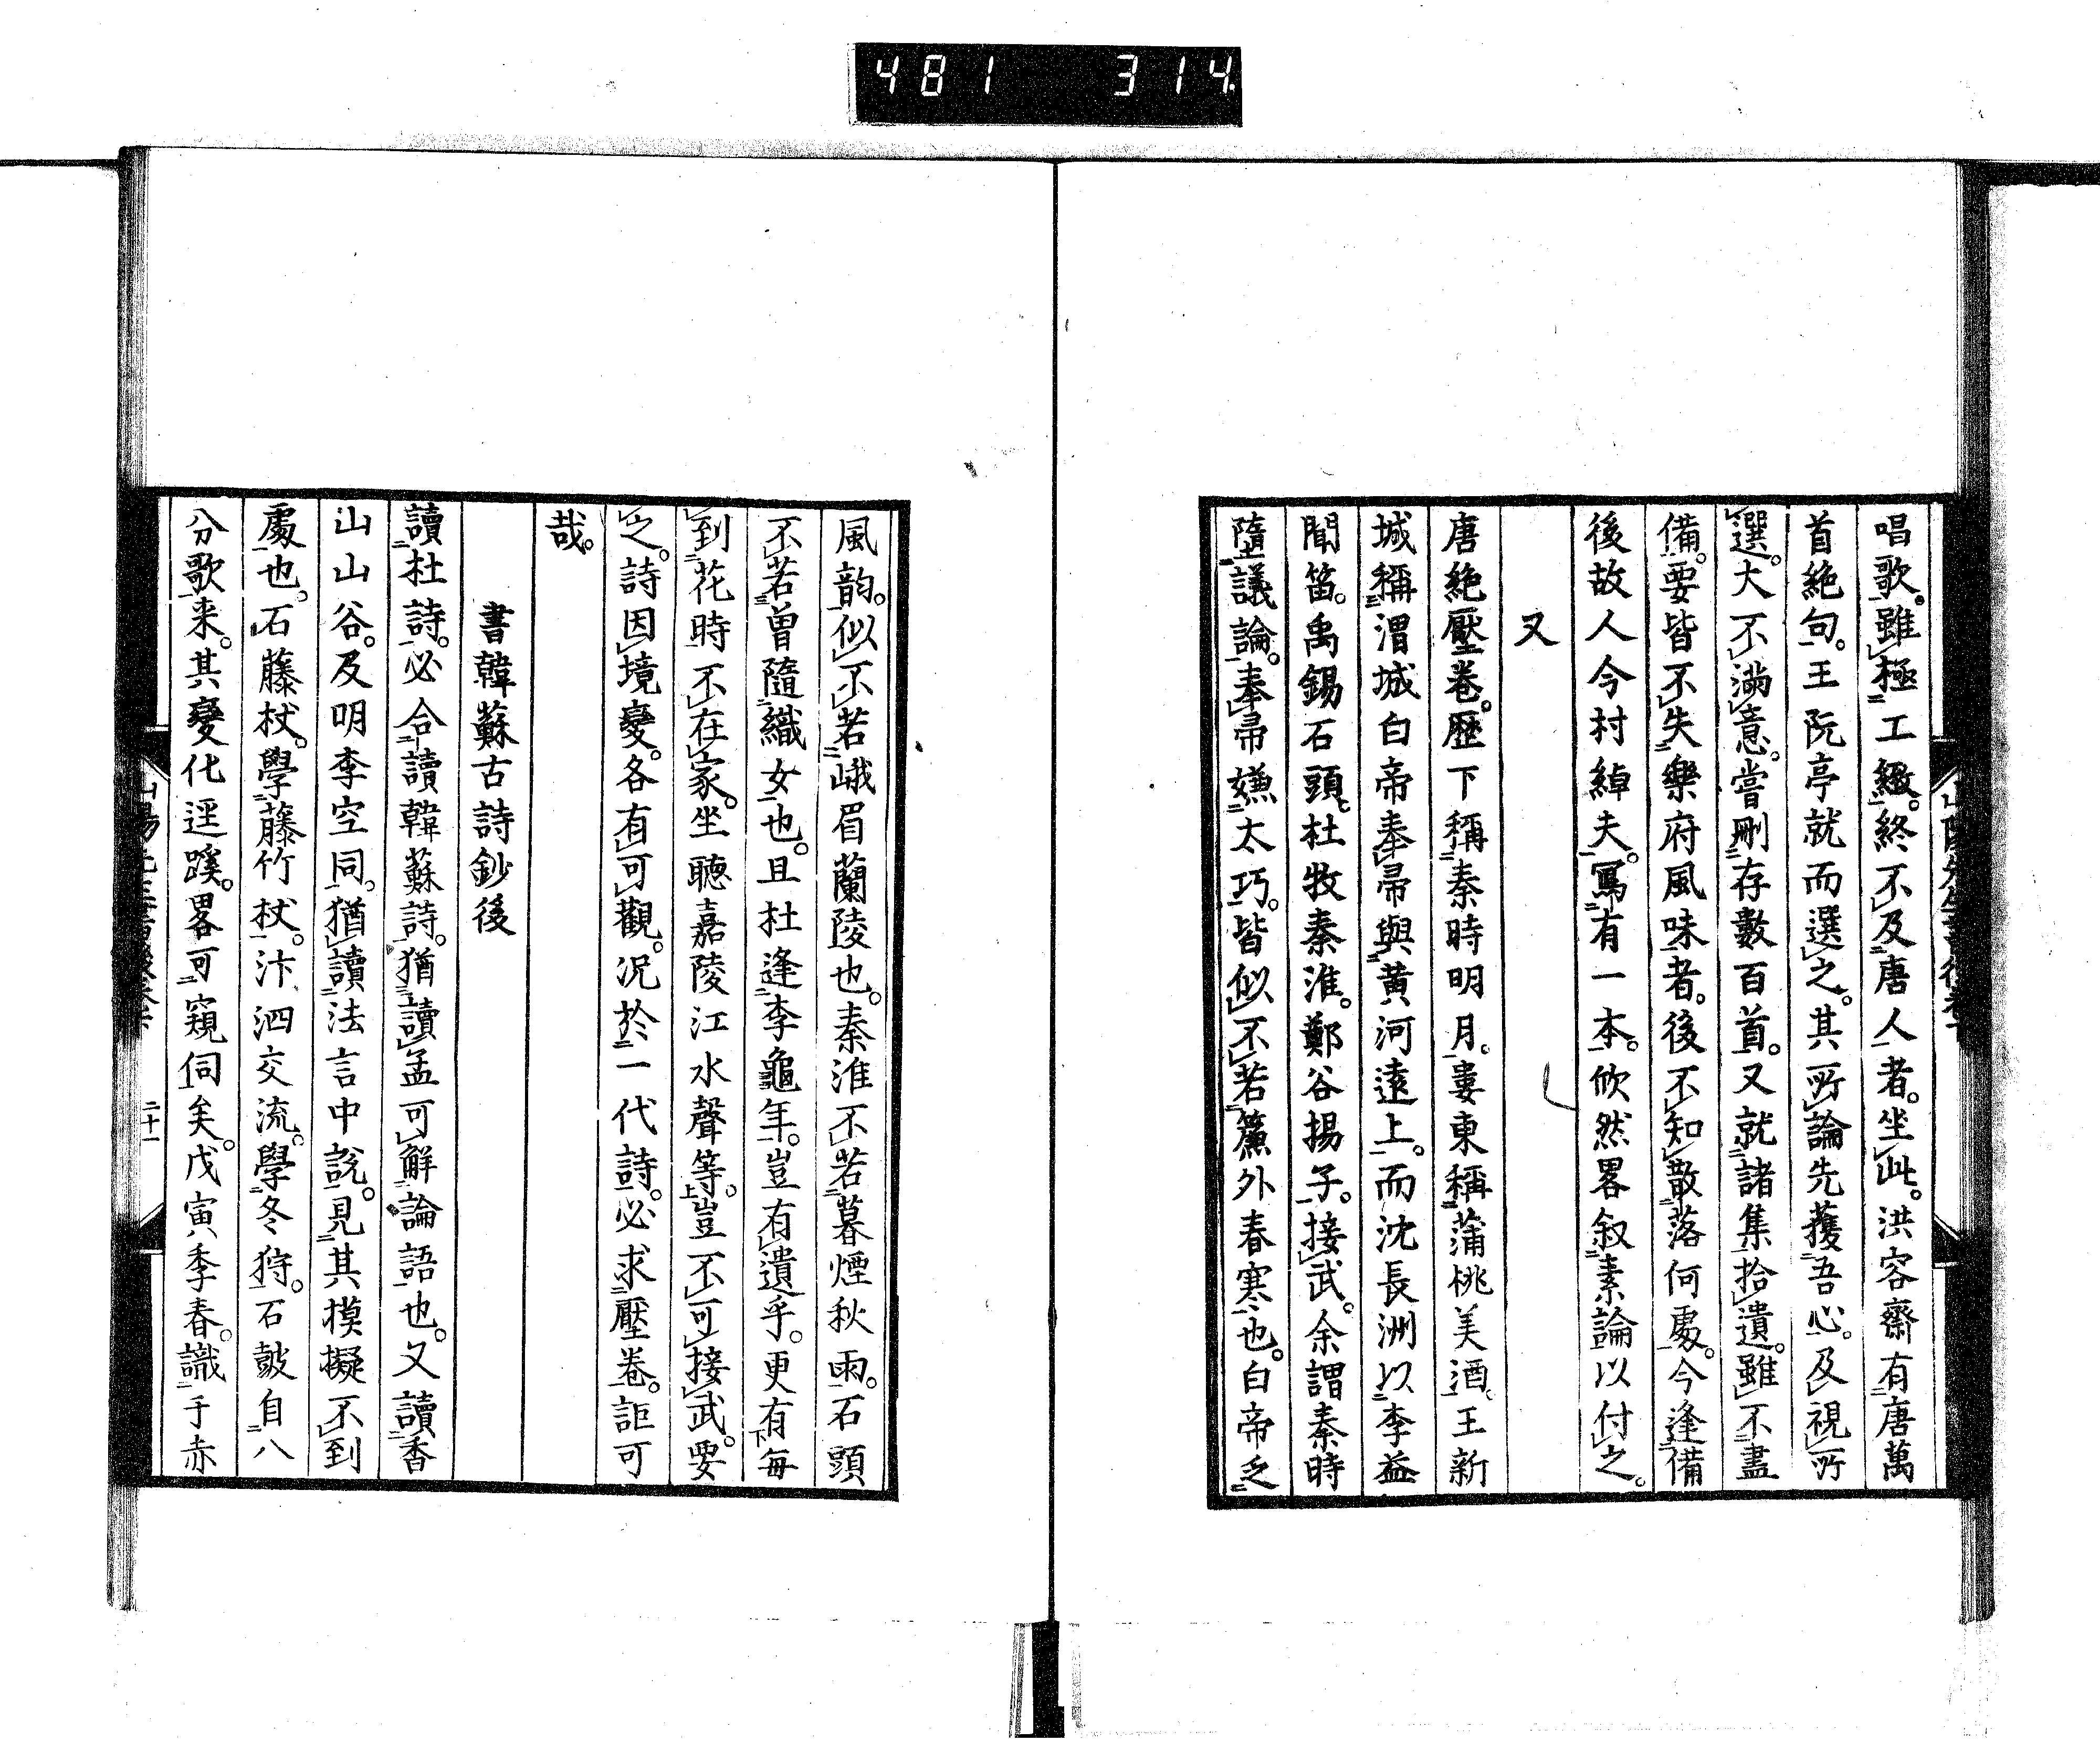 481 314
唱歌。雖極工緻。終不及唐人者。坐此。洪容齋有唐萬
首絶句。王阮亭就而選之。其所論先獲吾心。及視所
選。大不滿意。嘗刪存數百首。又就諸集拾遺。雖不盡
備。要皆不失樂府風味者。後不知散落何處。今逢備
後故人今村綽夫。寫有一本。欣然畧叙素論以付之。
又
唐絶壓卷。歴下稱秦時明月。婁東稱蒲桃美酒。王新
城稱渭城白帝奉帚與黄河遠上。而沈長洲以李益
聞笛。禹錫石頭。杜牧秦淮。鄭谷揚子。接武。余謂秦時
墮議論。奉帚嫌太巧。皆似不若簾外春寒也。白帝乏
風韵。似不若峨眉蘭陵也。秦淮不若暮煙秋雨。石頭
不若曽隨織女也。且杜逢李龜年。豈有遺乎。更有每
到花時不在家。坐聽嘉陵江水聲等。豈不可接武。要
之。詩因境變。各有可觀。况於一代詩。必求壓卷。詎可
哉。
書韓蘇古詩鈔後
讀杜詩。必合讀韓蘇詩。猶讀孟可解論語也。又讀香
山山谷。及明李空同。猶讀法言中説。見其摸擬不到
處也。石藤杖。學藤竹杖。汴泗交流。學冬狩。石鼓自八
分歌来。其變化逕蹊。畧可窺伺矣。戊寅季春。識于赤
二十一